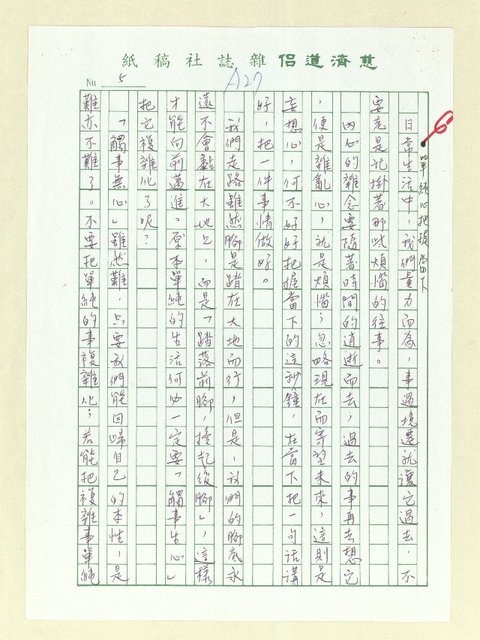 慈濟道侶雜誌社稿紙
No. 5
A27
6
單純心把握當下
日常生活中，我們量力而為，事過境遷就讓它過去，不
要老是記掛著那些煩惱的往事。
內心的雜念要隨著時間的逍逝而去，過去的事再去想它
，便是雜亂心，就是煩惱；忽略現在而寄望未來，這則是
妄想心，何不好好把握當下的這秒鐘，在當下把一句話講
好，把一件事情做好。
我們走路雖然腳是踏在大地而行，但是，我們的腳底永
遠不會黏在大地上，而是「踏落前腳，捨起後腳」，這樣
才能向前邁進。原本單純的生活何必一定要「觸事生心」
把它複雜化了呢？
「觸事無心」雖然難，只要我們能回歸自己的本性，是
難亦不難了。不要把單純的事複雜化；若能把複雜事單純